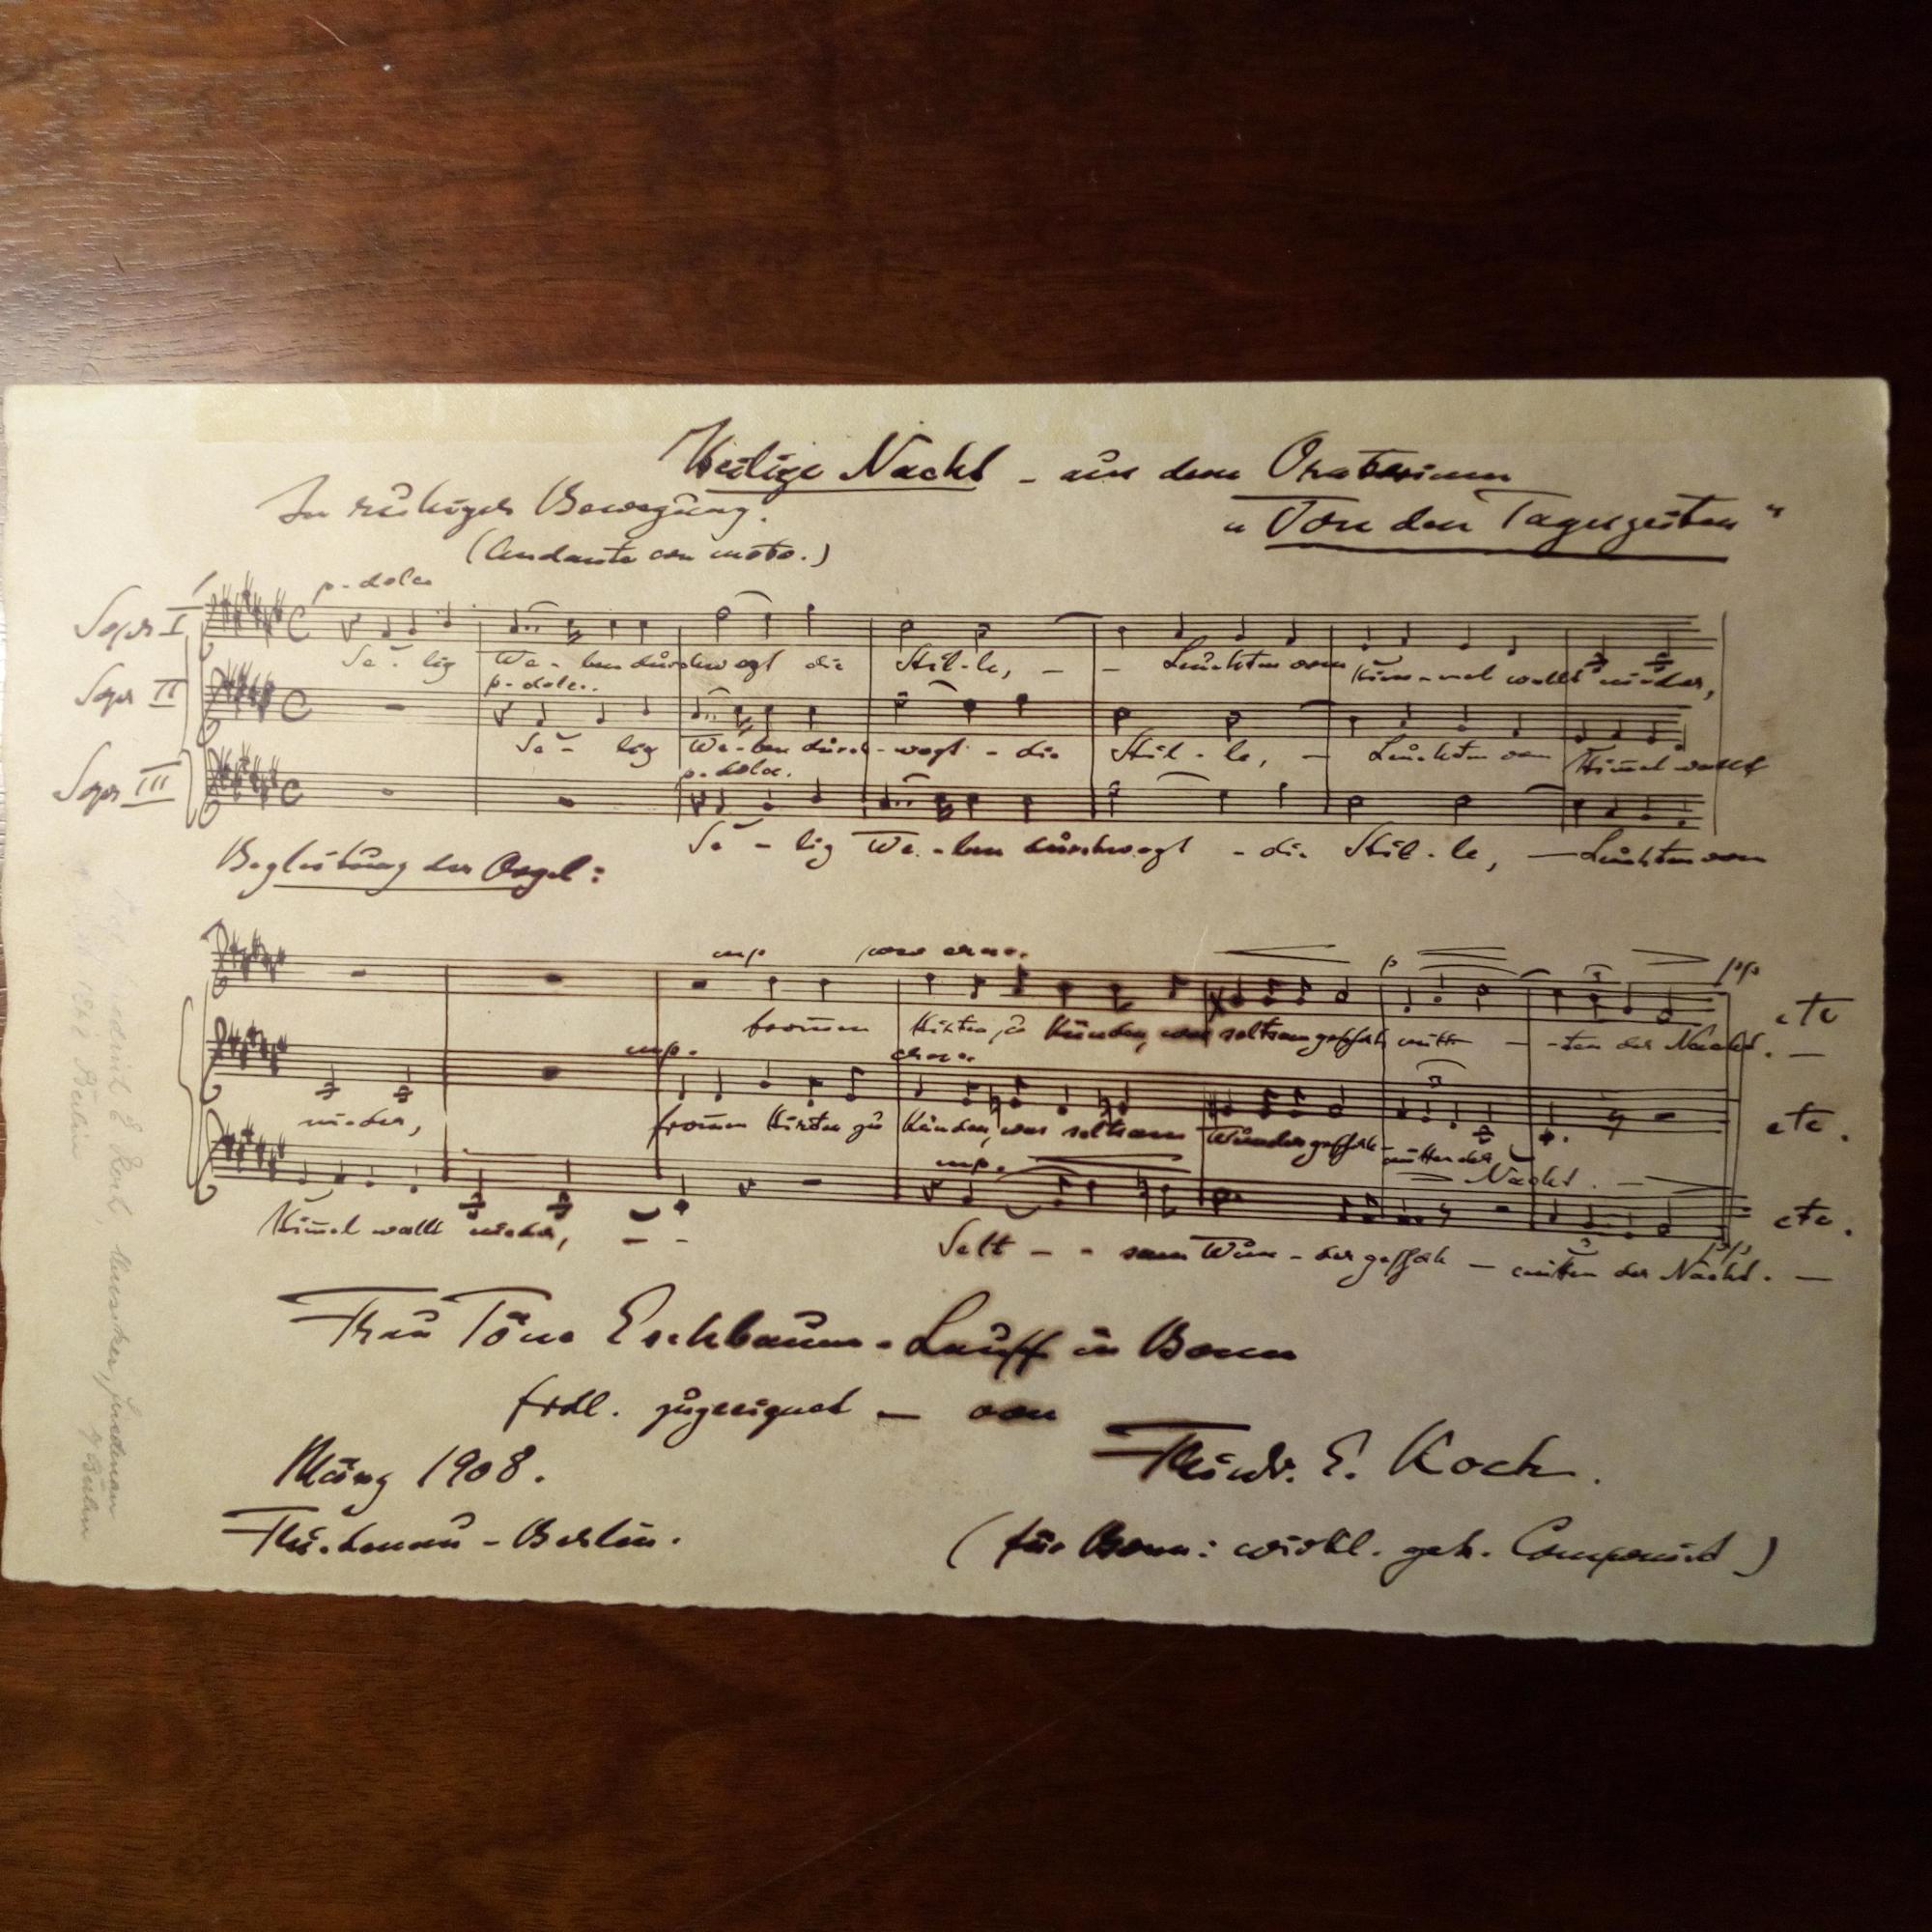 Heilige Nacht - aus dem Oratorium
"Von den Tageszeiten"
In ruhiger Bewegung.
(Andante con moto.)
p. dolce
Sopr I
Se - lig We - ben durchwogt die Stil - le, - - Leuchten vom Him̄ - mel wallt nieder,
p. dolce.
Sopr II
Se - lig We - ben durch - wogt - die Stil - le, - Leuchten vom Him̄el wallt
p. dolce.
Sopr III
Se - lig We - ben durchwogt - die Stil - le, — Leuchten vom
Begleitung der Orgel:
mp cresc.
from̄en Hirten zu künden, was seltsam geschah mitt - - ten der Nacht. —
p pp
etc
mp. cresc.
nieder, from̄en Hirten zu künden, was seltsam Wunder geschah - mitten der Nacht. —
etc.
mp.
Him̄el wallt nieder, - - Selt - - sam Wun - der geschah — mitten der Nacht. —
pp
etc.
Frau Töne Eschbaum - Lauff in Bonn
frdl. zugeeignet — von
Friedr. E. Koch.
März 1908.
Friedenau - Berlin.
(für Bonn: wirkl. geh. Componist)
Friedrich E Koch, Musiker, Friedenau
1862 Berlin
b/ Berlin